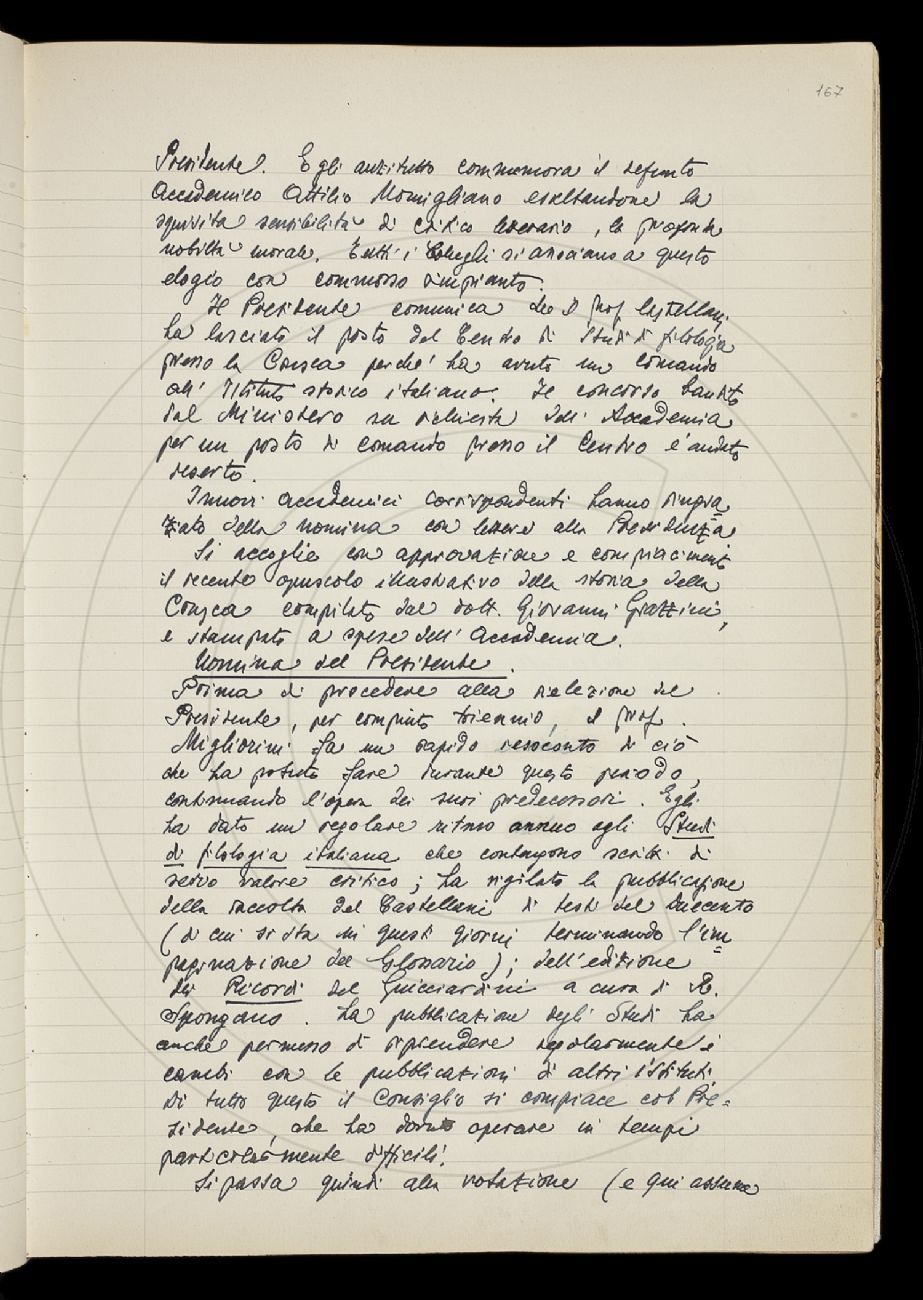 167
Presidente. Egli anzitutto commemora il defunto
Accademico Attilio Momigliano esaltandone la
squisita sensibilità di critico letterario, la profonda
nobiltà morale. Tutti i Colleghi si associano a questo
elogio con commosso rimpianto.
Il Presidente comunica che il prof. Castellani
ha lasciato il posto del Centro di Studi di filologia
presso la Crusca perché ha avuto un comando
all'Istituto storico italiano. Il concorso bandito
dal Ministero su richiesta dell'Accademia
per un posto di comando presso il Centro è andato
deserto.
I nuovi accademici corrispondenti hanno ringra
ziato della nomina con lettere alla Presidenza
Si accoglie con approvazione e compiacimento
il recente opuscolo illustrativo della storia della
Crusca compilato dal dott. Giovanni Grazzini,
e stampato a spese dell'Accademia.
Nomina del Presidente.
Prima di procedere alla rielezione del
Presidente, per compiuto triennio, il prof.
Migliorini fa un rapido resoconto di ciò
che ha potuto fare durante questo periodo,
continuando l'opera dei suoi predecessori. Egli
ha dato un regolare ritmo annuo agli Studi
di filologia italiana che contengono scritti di
serio valore critico; ha vigilato la pubblicazione
della raccolta del Castellani di testi del Duecento
(di cui si sta in questi giorni terminando l'im=
paginazione del Glossario); dell'edizione
dei Ricordi del Guicciardini a cura di R.
Spongano. La pubblicazione degli Studi ha
anche permesso di riprendere regolarmente i
cambi con le pubblicazioni di altri istituti.
Di tutto questo il Consiglio si compiace col Pre=
sidente, che ha dovuto operare in tempi
particolarmente difficili.
Si passa quindi alla votazione (e qui assume